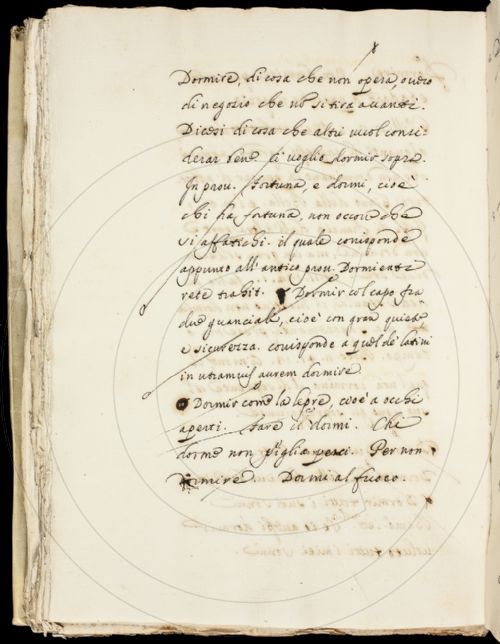 Dormire, di cosa che non opera, overo
di negozio che nõ si tira avanti.
Dicesi di cosa che altri vuol consi-
derar bene ci voglio dormir sopra.
In prov. fortuna, e dormi, cioè
chi ha fortuna, non occorre che
si affatichi. il quale corrisponde
appunto all'antico prov. Dormienti
rete trahit. Dormir col capo fra
due guanciali, cioè con gran quiete
e sicurezza. corrisponde a quel de' latini
in utramvis aurem dormire.
Dormir come la lepre, cioè a occhi
aperti. fare il dormi. Chi
dorme non piglia pesci. Per non
dormire. Dormi al fuoco.